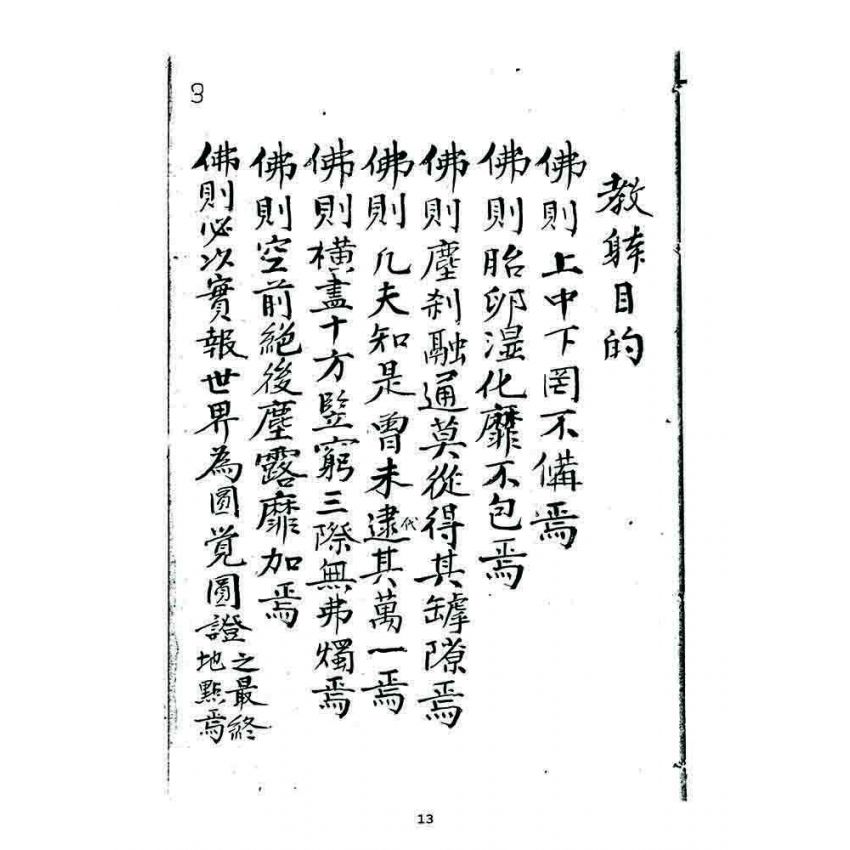 教躰目的
佛則上中下罔不備焉
佛則胎卵湿化靡不包焉
佛則塵刹融通莫從得其罅隙焉
佛則凡夫知是曾未逮其萬一焉
代
佛則橫盡十方竪窮三際無弗燭焉
佛則空前絕後塵露靡加焉
佛則必次實報世界為圓覚圓證之最終地點焉
13